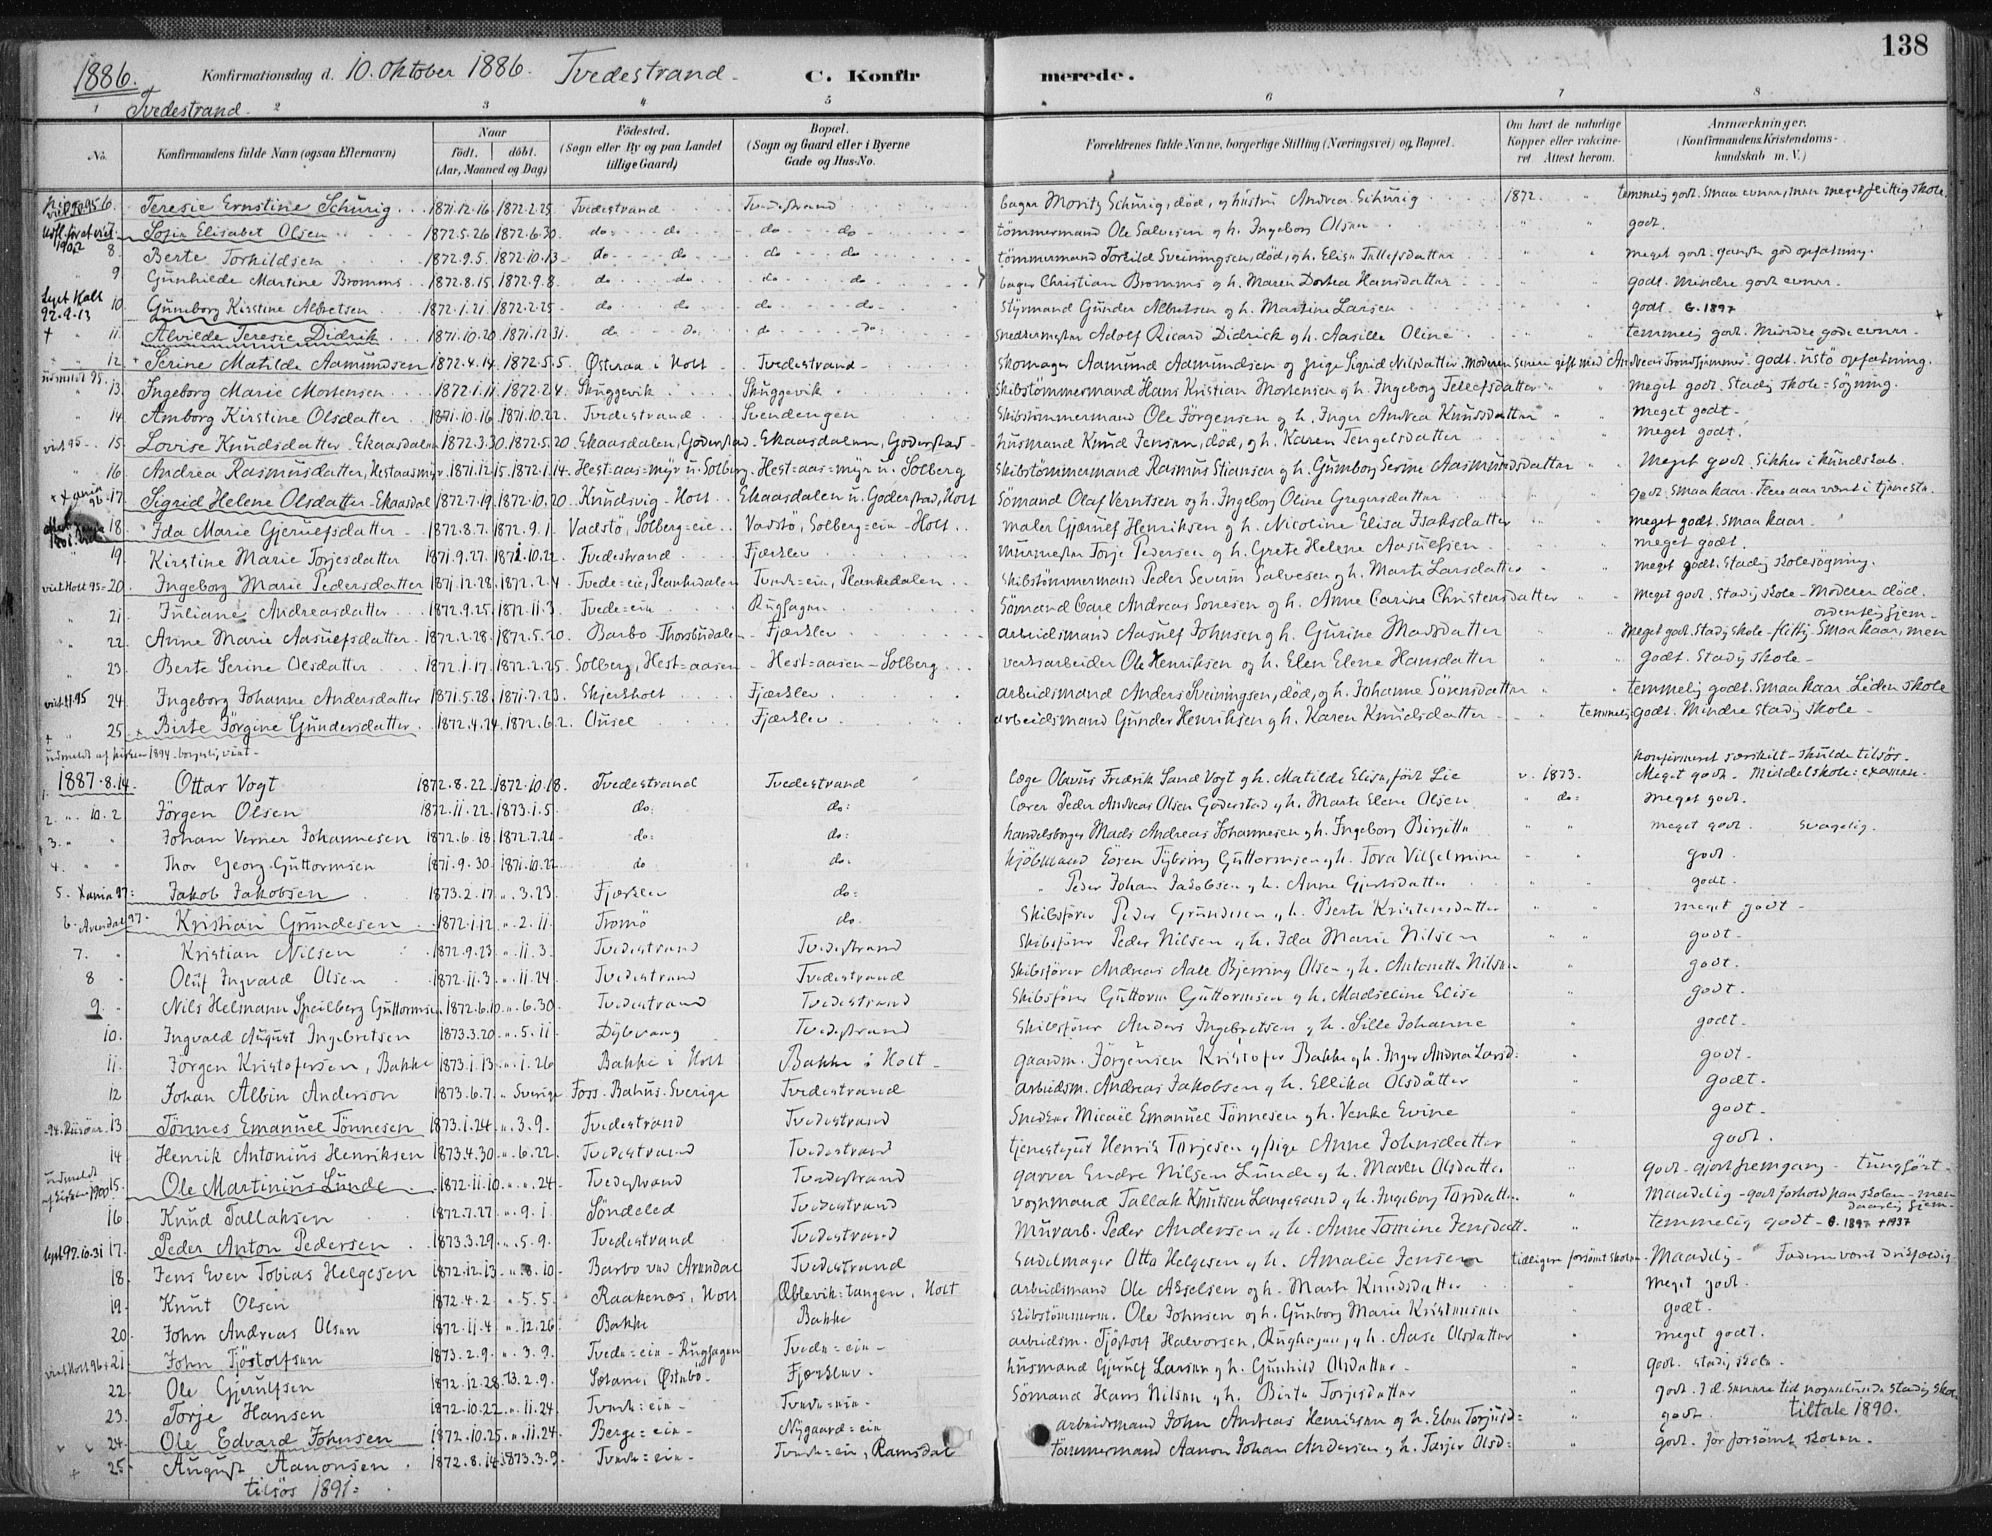 138
1886. Konfirmationsdag d. 10. Oktober 1886. Tvedestrand. C. Konfir merede.
Tvedestrand.
1 2 3 4 5 6 7 8
No. Konfirmandens fulde Navn (ogsaa Efternavn) Naar Født. døbt. (Aar, Maaned og Dag) Fødested. (Sogn eller By og paa Landet tillige Gaard) Bopæl. (Sogn og Gaard eller i Byerne Gade og Hus-No. Forældrenes fulde Navne, borgerlige Stilling (Næringsvei) og Bopæl. Om havt de naturlige Kopper eller vakcineret Attest herom. Anmærkninger. (Konfirmandens Kristendomskundskab m. V.)
6. Teresie Ernstine Schurig 1871.12.16 1872.2.25 Tvedestrand Tvedestrand bager Moritz Schurig, död, og hustru Andrea Schurig 1872. temmelig godt. Smaa evner, men meget flittig skole
Sofie Elisabet Olsen 1872.5.26 1872.6.30 do do do do tömmermand Ole Salvesen og h. Ingeborg Olsen godt.
1902
8 Berte Torkildsen 1872.9.5. 1872.10.13 do do do do tömmermand Torkild Sveiningsen, död, og h. Elise Tellefsdatter meget godt. ganske god opfatning.
9 Gunhilde Martine Bromms 1872.8.15 1872.9.8. do do do do bager Christian Bromms og h. Maren Dortea Hansdatter godt. Mindre gode evner.
10 Gumborg Kirstine Albretsen 1872.1.21 1872.2.25 do do do do Styrmand Gunder Albretsen og h. Martine Larsen godt. G. 1897
92.9.13
11. Alvilde Teresie Didrik 1871.10.20 1871.12.31. do do do do Snedkermester Adolf Ricard Didrick og h. Aasille Oline temmelig godt. Mindre gode evner.
12 Serine Matilde Aamundsen 1872.4.14. 1872.5.5. Østeraa i Holt Tvedestrand Skomager Aamund Aamundsen og pige Sigrid Nilsdatter. Moderen senere gift med Andreas godt. ustö opfatning.
udmeldt 95. 13. Ingeborg Marie Mortensen 1872.1.11 1872.2.4. Skuggevik Skuggevik Skibstömmermand Hans Kristian Mortensen og h. Ingeborg Tellefsdatter meget godt. Stadig skole=sögning.
14 Amborg Kirstine Olsdatter 1871.10.16 1871.10.22. Tvedestrand Svendengen Skibstömmermand Ole Jörgensen og h. Inger Andrea Knudsdatter meget godt.
viet 95 15. Lovise Knudsdatter Ekaasdalen 1872.3.30. 1872.5.20. Ekaasdalen, Goderstad Ekaasdalen, Goderstad husmand Knud Jensen, död, og h. Karen Tengelsdatter meget godt.
16 Andrea Rasmusdatter, Hestaasmyr 1871.12.15. 1872.1.14. Hest=aas=myr u. Solberg Hest=aas=myr u. Solberg Skibstömmermand Rasmus Stiansen og h. Gumborg Serine Aasmundsdatter Meget godt. Sikker i kundskab.
17 Sigrid Helene Olsdatter Ekaasdal 1872.7.19. 1872.10.20. Knudsvig Holt Ekaasdalen u. Goderstad, Holt Sömand Olaf Verntsen og h. Ingeborg Oline Gregersdatter godt. Smaa kaar. Flere aar været i tjeneste.
18 Ida Marie Gjerulfsdatter 1872.8.7. 1872.9.1. Vadstö, Solberg=eie Vadstö, Solberg=eie Holt maler Gjærulf Henriksen og h. Nicoline Elisa Isaksdatter meget godt. Smaa kaar.
19 Kirstine Marie Torjesdatter 1871.9.27. 1871.10.22. Tvedestrand Fjærkleu murmester Torje Pedersen og h. Grete Helene Aasulfsen meget godt.
viet Holt 95 20. Ingeborg Marie Pedersdatter 1871.12.28. 1872.2.4. Tvede=eie, Plankedalen Tvede=eie, Plankedalen Skibstömmermand Peder Severin Salvesen og h. Marte Larsdatter meget godt. Stadig skolesögning.
21. Juliane Andreasdatter 1872.9.25 1872.11.3. Tvede=eie Rughagen Sömand Care Andreas Sonesen og h. Anne Carine Christensdatter Meget godt. Stadig skole. Moderen död. ordentlig hjem.
22. Anne Marie Aasulfsdatter 1872.2.28. 1872.5.20. Barbo Thorsbudalen Fjærkleu arbeidsmand Aasulf Johnsen og h. Gurine Madsdatter Meget godt. Stadig skole flittig. Smaa kaar, men
23. Berte Serine Olsdatter 1872.1.17. 1872.2.25. Solberg, Hest=aasen Hest=aasen Solberg verksarbeider Ole Henriksen og h. Elen Elene Hansdatter godt. Stadig skole
viet H. 95 24 Ingeborg Johanne Andersdatter 1871.5.28. 1871.7.23. Skjerkholt Fjærkleu arbeidsmand Anders Sveiningsen, död, og h. Johanne Sörensdatter temmelig godt. Smaa kaar. Liden skole
25 Birte Jörgine Gundersdatter 1872.4.14. 1872.6.2. Ousel Fjærkleu arbeidsmand Gunder Henriksen og h. Karen Knudsdatter temmelig godt. Mindre stadig skole
udmeldt af kirken 1894 borgerlig viet
Konfirmeret særskilt skulde tilsös.
1887.8.14. 1. Ottar Vogt 1872.8.22. 1872.10.18. Tvedestrand Tvedestrand læge Olavus Fredrik Sand Vogt og h. Matilde Elise, födt Lie v. 1873. Meget godt. Middelskole=examen.
2. 10.2 Jörgen Olsen 1872.11.22. 1873.1.5 do: do: Lærer Peder Andreas Olsen Goderstad og h. Marte Elene Olsen do= meget godt.
3. Johan Verner Johannesen 1872.6.18 1872.7.21 do: do: handelsborger Mads Andreas Johannesen og h. Ingeborg Birgitte meget godt. svagelig.
4. Thor Georg Guttormsen 1871.9.30 1871.10.22 do do: kjöbmand Even Tybring Guttormsen og h. Tora Vilhelmine godt.
5. Xania 97: Jakob Jakobsen 1873.2.17 " 3.23 Fjærkleu do= " Peder Johan Jakobsen og h. Anne Gjertsdatter godt.
6. Arendal 97. Kristian Grundesen 1872.1.12 " 2.11. Tromö do. Skibsförer Peder Grundesen og h. Berte Kristensdatter meget godt
7. Kristian Nilsen 1872.9.23 " 11.3. Tvedestrand Tvedestrand Skibsförer Peder Nilsen og h. Ida Marie Nilsen godt.
8 Oluf Ingvald Olsen 1872.11.3 " 11.24 Tvedestrand Tvedestrand Skibsförer Andreas Aale Bjerring Olsen og h. Antonette Nilsen godt.
9 Nils Helmann Speilberg Guttormsen 1872.6.10 " 6.30 Tvedestrand Tvedestrand Skibsförer Guttorm Guttormsen og h. Madseline Elise godt.
10. Ingvald August Ingebretsen 1873.3.20 " 5.11 Dybvaag Tvedestrand Skibsförer Anders Ingebretsen og h. Sille Johanne godt.
11. Jörgen Kristofersen, Bakke 1873.1.13 " 1.26 Bakke i Holt Bakke i Holt gaardm. Jörgensen Kristofer Bakke og h. Inger Andrea Larsd: godt
12 Johan Albin Anderson 1873.6.7. " Sverige Foss. Bahus. Sverige Tvedestrand arbeidsm. Andreas Jakobsen og h. Ellika Olsdåtter godt.
94. Riisöer. 13 Tönnes Emanuel Tönnesen 1873.1.24 " 3.9. Tvedestrand Tvedestrand Snedker Micaël Emanuel Tönnesen og h. Venke Evine godt
14 Henrik Antonius Henriksen 1873.4.30 " 6.22. Tvedestrand Tvedestrand tjenestegut Henrik Torjesen og pige Anne Johnsdatter godt.
udmeldt af kirken 1900 15. Ole Martinius Lunde 1872.11.10 " 24 Tvedestrand Tvedestrand garver Endre Nilsen Lunde og h. Maren Olsdatter godt. gjort fremgang tunghört
16 Knud Tallaksen 1872.7.27 " 9.1 Söndeled Tvedestrand vognmand Tallak Knutsen Langesand og h. Ingeborg Torsdatter maadelig godt forhold paa skolen men daarlig hjem
97.10.31 17. Peder Anton Pedersen 1873.3.29 " 5.9. Tvedestrand Tvedestrand Murarb. Peder Andersen og h. Anne Tomine Jensdatt. temmelig godt G. 1897 +1937
18. Jens Even Tobias Helgesen 1872.12.13 " 8.10 Barbo ved Arendal Tvedestrand Sadelmager Otto Helgesen og h. Amalie Jensen tidligere forsömt skolen Maadelig Faderen
19. Knut Olsen 1872.4.2 " 5.5. Raakenes, Holt Øblevik=tangen, Holt arbeidsmand Ole Akselsen og h. Marte Knudsdatter meget godt.
20. John Andreas Olsen 1872.11.4 " 12.26 Bakke Bakke Skibstömmerm. Ole Johnsen og h. Gunborg Marie Kristensen godt.
viet Holt 96 21 John Tjöstolfsen 1873.2.9. " 3.9. Tvede=eie Rughagen Tvede=eie arbeidsm. Tjöstolf Halvorsen, Rughagen, og h. Aase Olsdatter meget godt.
22. Ole Gjerulfsen 1872.12.28. 73.2.9. Østebö Fjærkleu. husmand Gjerulf Larsen og h. Gunhild Olsdatter godt. stadig skole.
23. Torje Hansen 1872.10.22 " 11.24. Tvede=eie Tvede=eie Sömand Hans Nilsen og h. Birte Torjesdatter godt. I d. senere tid stadig skole
24. Ole Edvard Johnsen 1872.10.25 " 11.24. Berge=eie Nygaard=eie arbeidsmand John Andreas Henriksen og h. Elen Torjusd= godt. tiltale 1890.
25 August Aanonsen 1872.8.14 1873.3.9. Tvede=eie Tvede=eie, Ramsdal tömmermand Aanon Johan Andersen og h. Torjer Olsd= godt. för forsömt skolen.
tilsös 1891=